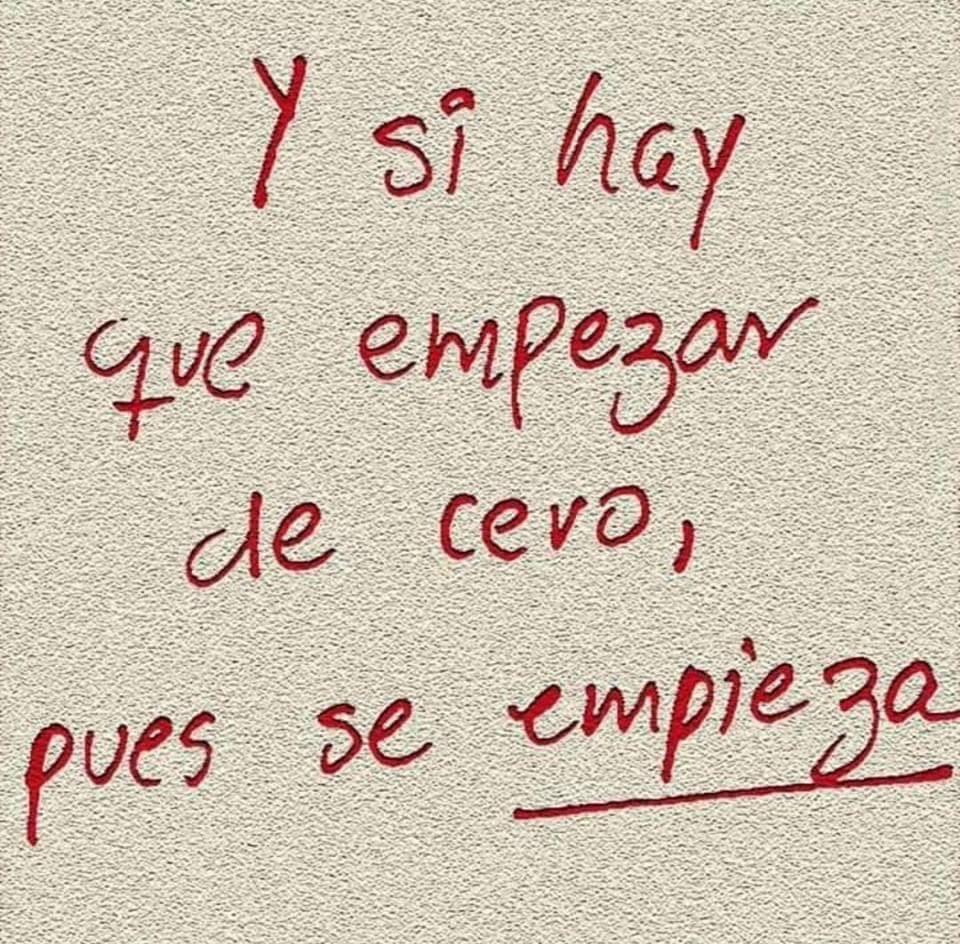 Y si hay
que empezar
de cero,
pues se empieza